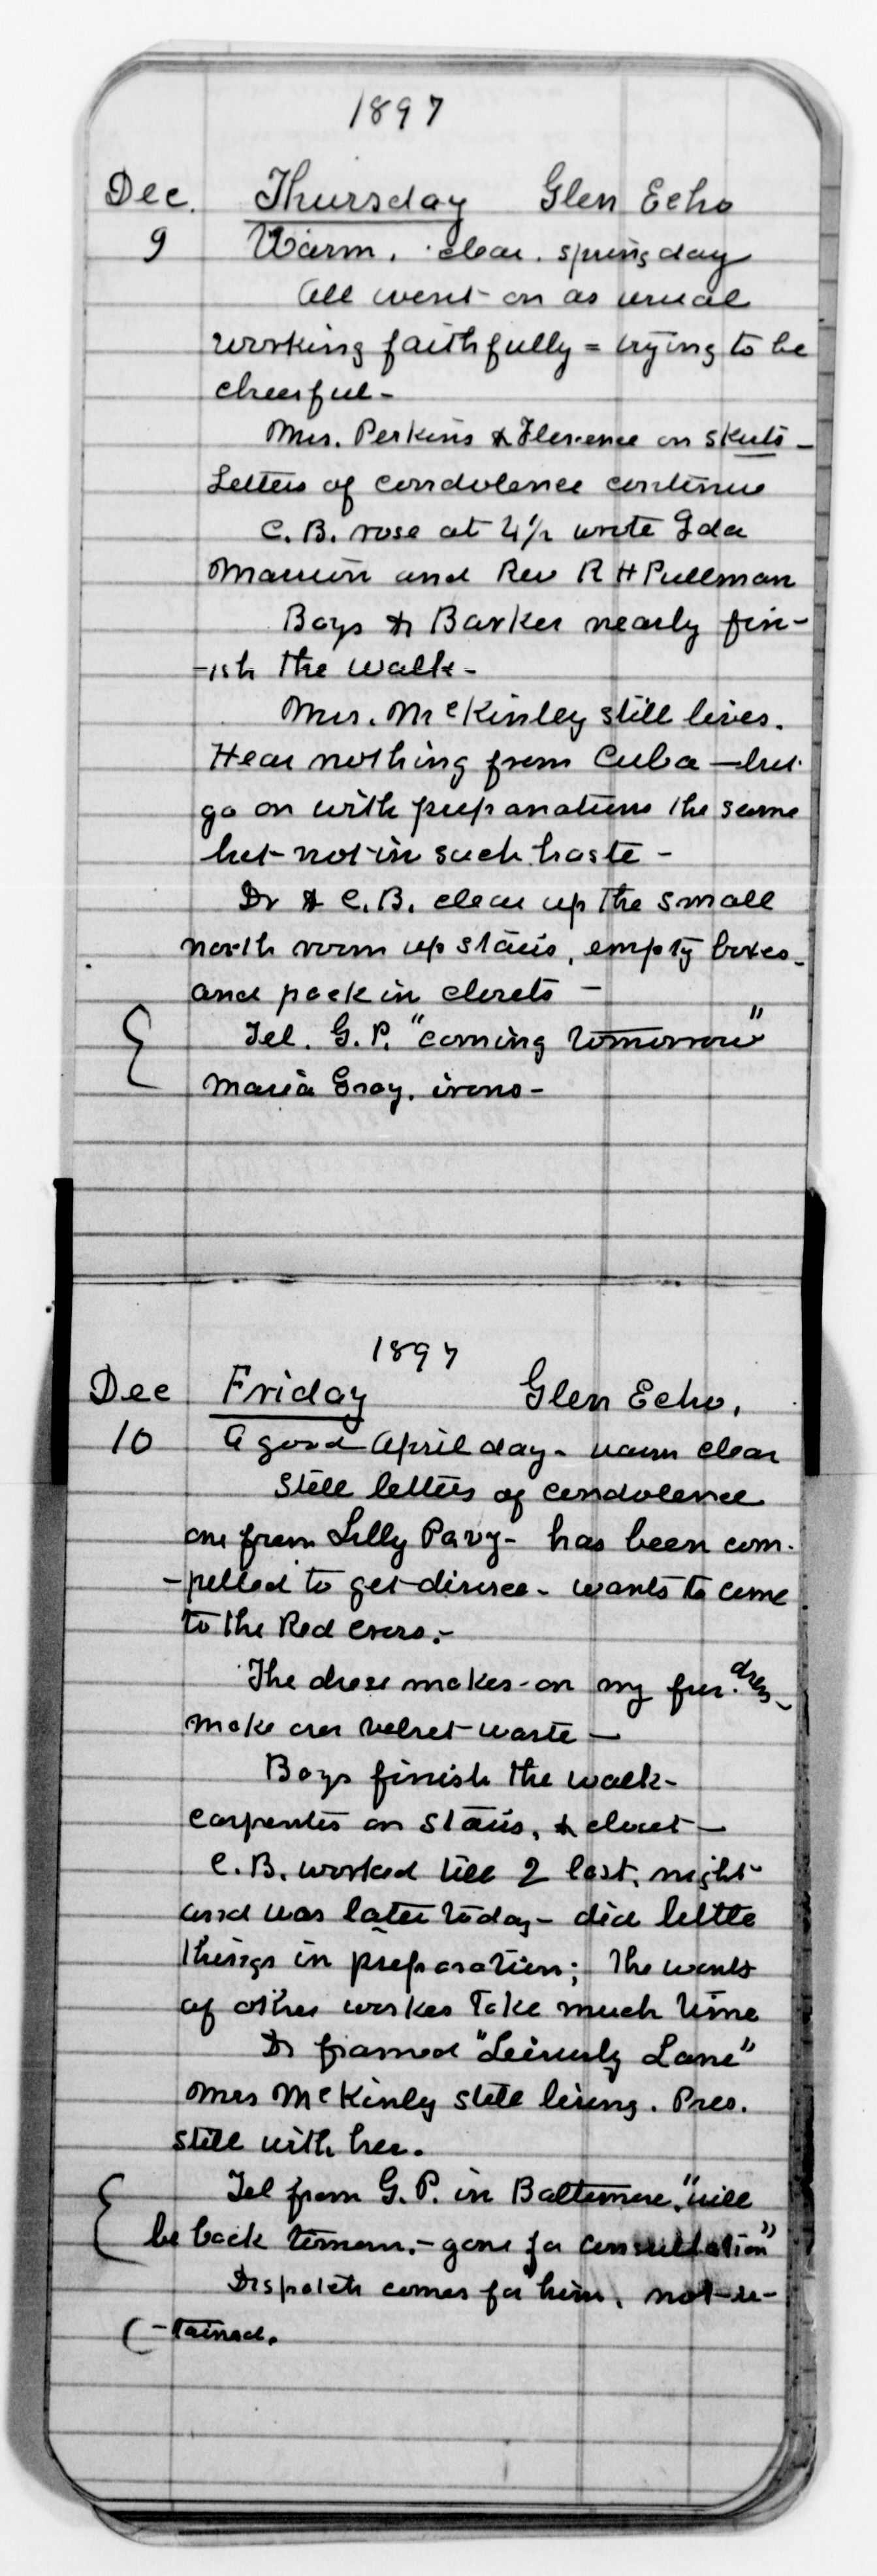 1897
Dec. Thursday Glen Echo
9 Warm. clear. spring day
All went on as usual
working faithfully = trying to be
cheerful -
Mrs. Perkins & Florence on skirts -
Letters of condolence continue
C. B. rose at 4½ wrote Ida
and Rev R H Pullman
Boys & Barker nearly fin-
-ish the walk -
Mrs. McKinley still lives.
Hear nothing from Cuba — but
go on with preparations the same
but not in such haste -
Dr & C. B. clear up the small
north room up stairs, empty boxes -
and pack in closets -
Tel. G. P. "coming tomorrow"
Maria Gray. irons -
1897
Dec Friday Glen Echo,
10 A good April day - warm clear
Still letters of condolence
one from Lilly Pavy - has been com-
-pelled to get divorce - wants to come
to the Red Cross. -
The dress maker on my fur. dress -
make over velvet waste —
Boys finish the walk -
carpenter on stairs, & closet —
C. B. worked till 2 last night
and was later today - did little
things in preparation; The wants
of other workes take much time
Dr framed "Leisurly Lane"
Mrs McKinly still living. Pres.
still with her.
Tel from G. P. in Baltimore, "will
be back tomorrow. - gone for consultation"
Dispatch comes for him, not re-
-tained.